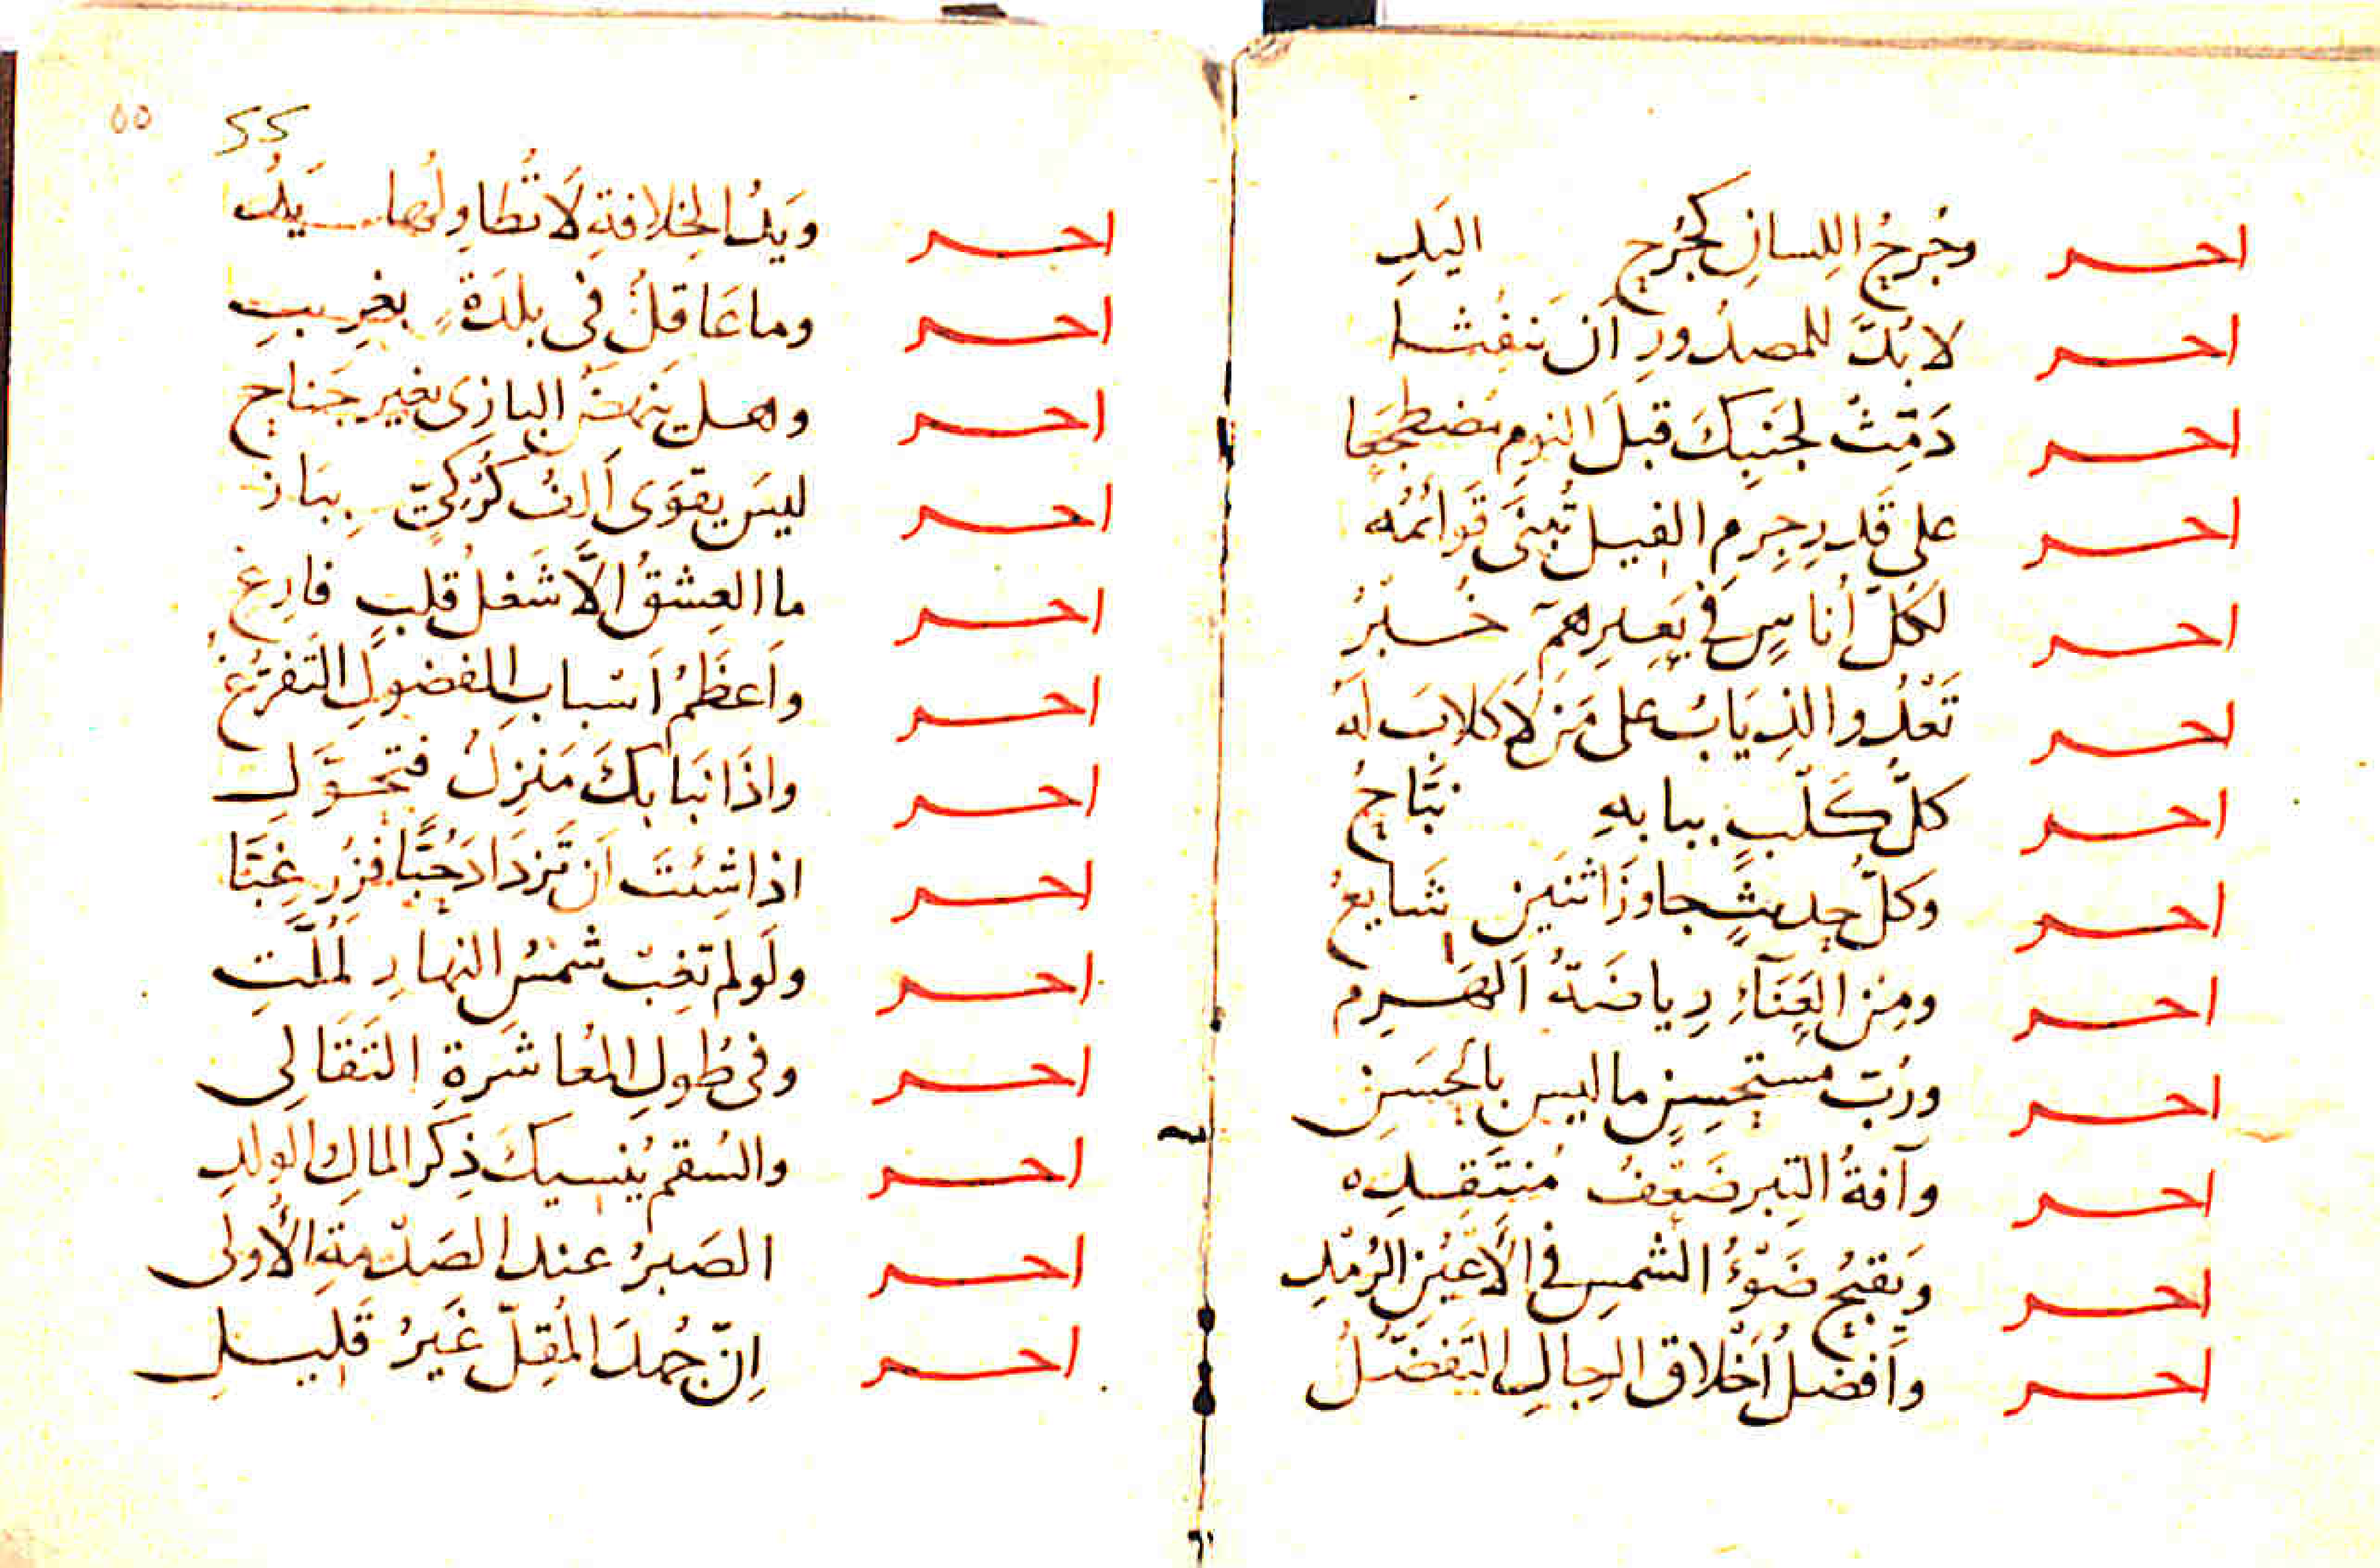 اخـر وجُرحُ اللِسانِ كجُرحِ اليَدِ
اخـر لا بُدَّ للمصدُورِ اَن يَنفُثا
اخـر دَمِّثْ لجَنبِكَ قبلَ النومِ مَضطجَعا
اخـر على قَدرِ جِرمِ الفيل تُبنَى قَوائمُه
اخـر لكلّ اُناسٍ في بَعِيرِهِم خُبْرُ
اخـر تَعْدُو الذِيَابُ على مَن لَا كلابَ لَهُ
اخـر كلُّ كَلْبٍ ببابهِ نَبَّاحُ
اخـر وكلُّ حديثٍ جاوزَ اثنَينِ شَايعُ
اخـر ومِنَ العَنَآءِ رِياضَةُ الهَرِم
اخـر ورُبّ مستحسِنٍ ما ليس بالحَسَنِ
اخـر وآفةُ التِبرِ ضَعْفُ مُنتَقِدِه
اخـر وَيَقبُحُ ضَوْءُ الشمسِ في الأَعْيُنِ الرُمْدِ
اخـر واَفضلُ اَخْلاقِ الرجالِ التَفَضُّلُ
٥٥
55
اخـر ويَدُ الخِلافةِ لَا تُطاوِلُها يَدُ
اخـر وما عَاقلٌ في بلدَةٍ بغرِيبِ
اخـر وهل يَنهَضُ البازى بغيرِ جَناحِ
اخـر ليسَ يقوَى اَلفُ كُرْكيٍّ بِبَاز
اخـر ما العِشقُ الَّا شَغلُ قلبٍ فارِغ
اخـر واَعظَمُ اَسْبابِ الفضولِ التَفَرُّغُ
اخـر واذَا نَبَا بكَ مَنزِلٌ فتحوَّلِ
اخـر اذا شِئتَ اَن تَزدَادَ حُبًّا فزُر غِبَّا
اخـر ولَو لم تغِبْ شمسُ النهارِ لَمُلَّتِ
اخـر وفى طُولِ المُعاشَرةِ التَقَالِى
اخـر والسُقم يُنسيكَ ذِكرَ المالِ والولدِ
اخـر الصَبرُ عندَ الصَدْمةِ الأُولى
اخـر اِنّ جُهدَ المُقِلّ غَيرُ قَليلِ